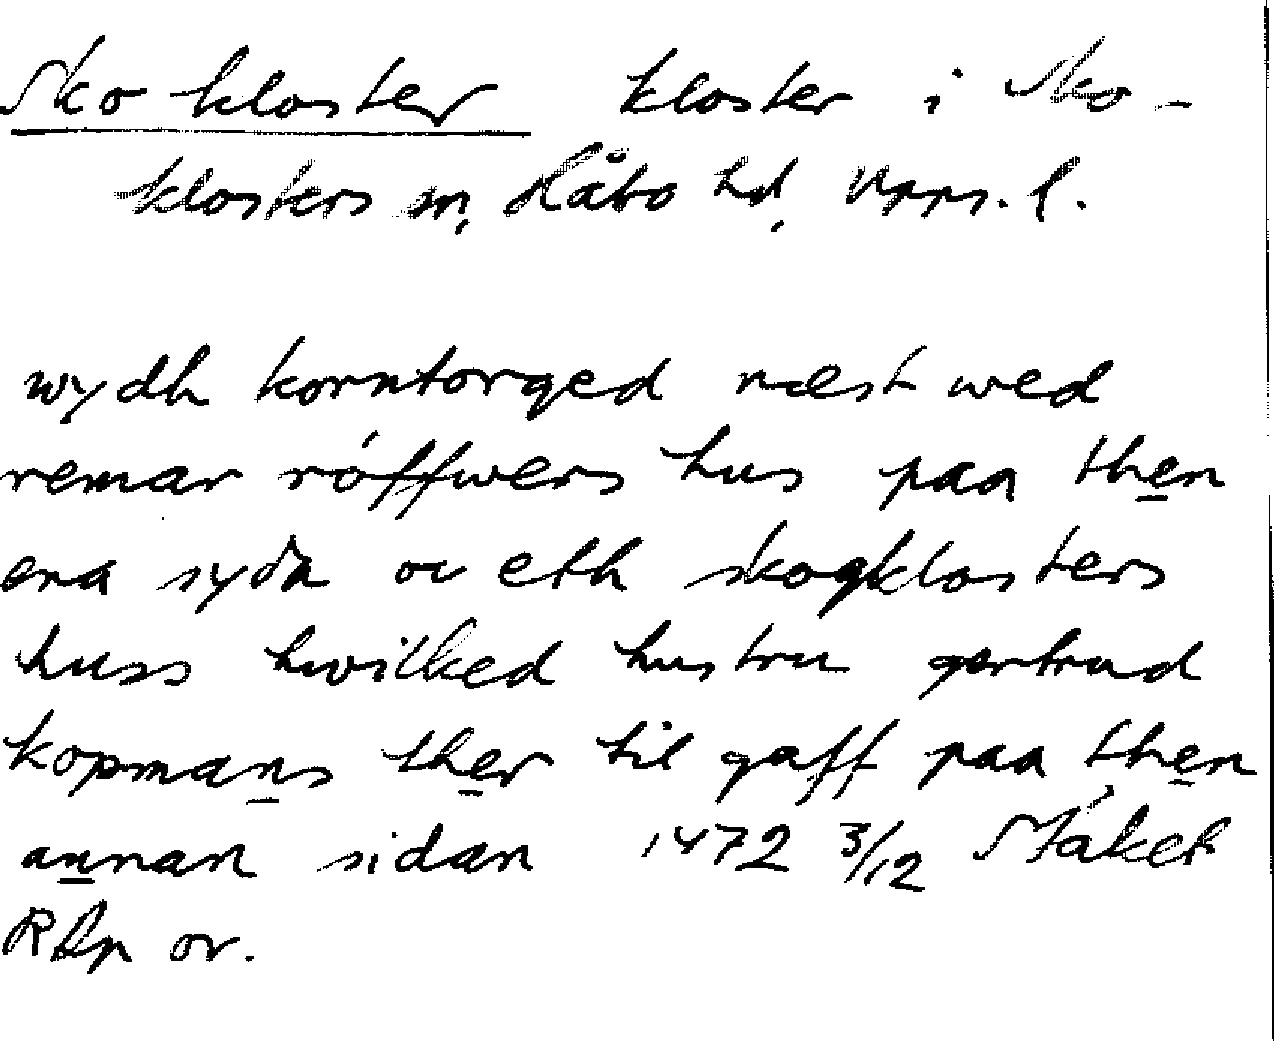 Skokloster kloster i Sko-
klosters sn, Håbo hd, Upps. l.
wydh korntorged næst wed
remar róffwers hus paa then
ena sydh oc eth skogklosters
huss hwilked hustru gertrud
kopmans ther til gaff paa then
annan sidan 1472 3/12 Stáket
RAp or.